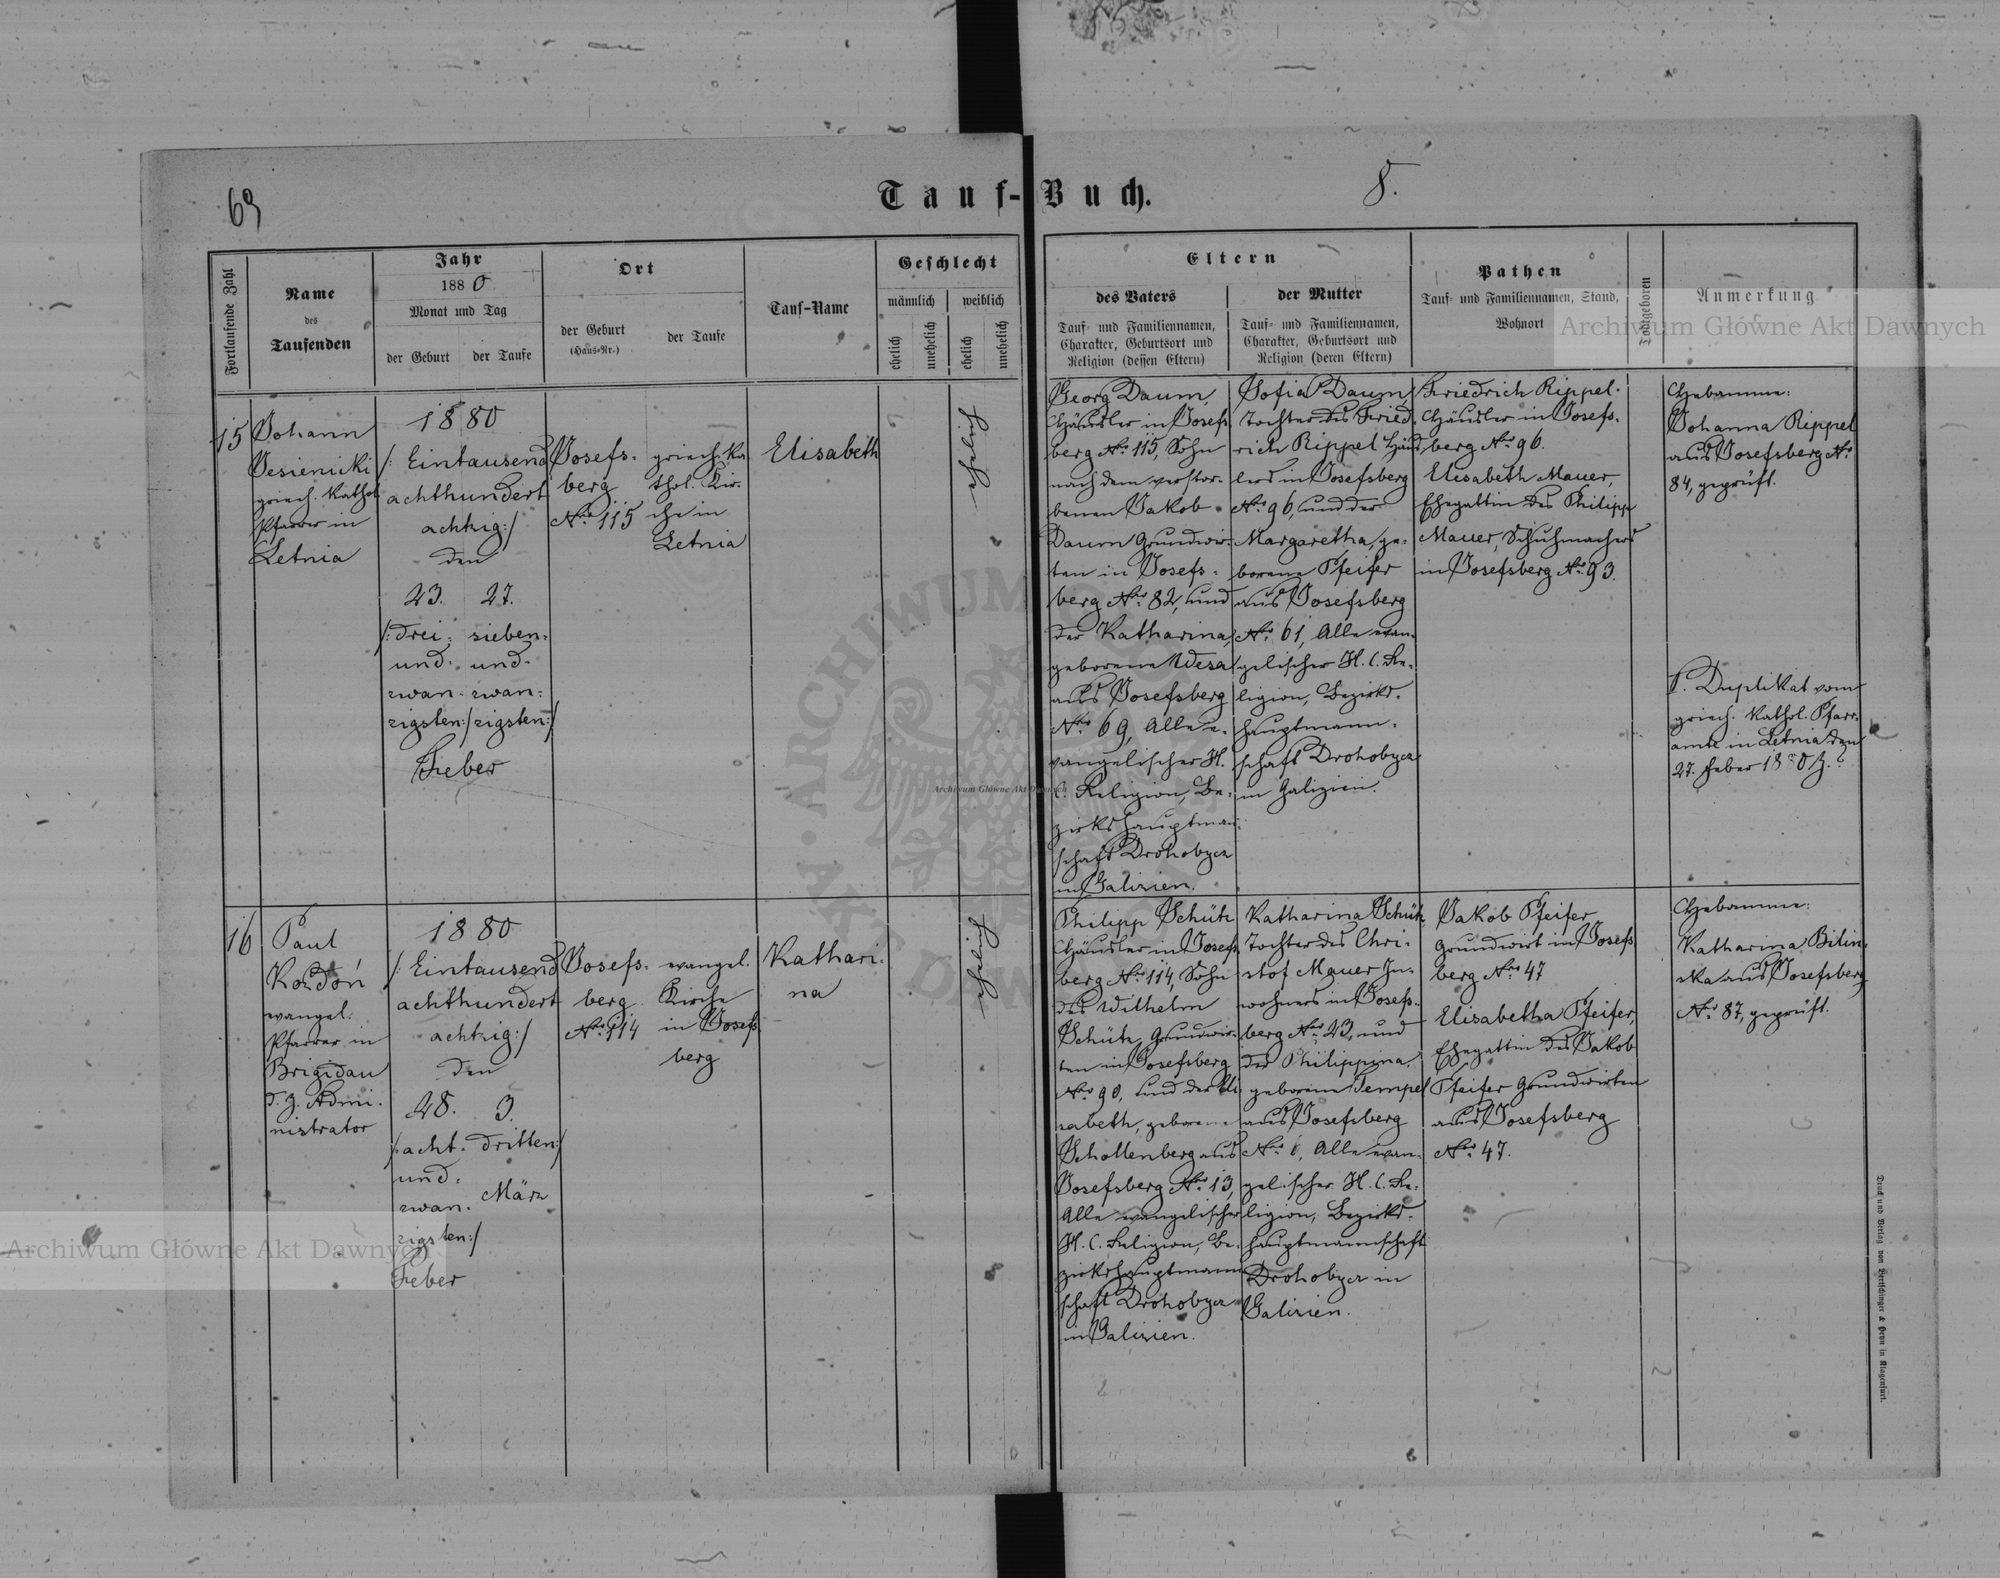 69
Tauf-Buch.
8.
Fortlaufende Zahl
Name
des
Taufenden
Jahr
1880
Monat und Tag
der Geburt
der Taufe
Ort
der Geburt
(Haus-Nr.)
der Taufe
Tauf-Name
Geschlecht
männlich
weiblich
ehelich
unehelich
ehelich
unehelich
Eltern
des Vaters
Tauf- und Familiennamen,
Charakter, Geburtsort und
Religion (dessen Eltern)
der Mutter
Tauf- und Familiennamen,
Charakter, Geburtsort und
Religion (deren Eltern)
Pathen
Tauf- und Familiennamen, Stand,
Wohnort
Todtgeboren
Anmerkung
15
Johann
Jesienicki
griech. kathol.
Pfarrer in
Letnia
1880
/: Eintausend
achthundert
achtzig:/
den
23.
/:drei-
und-
zwan-
zigsten:/
27.
sieben-
und-
zwan-
zigsten:/
Feber
Josefs-
berg
Nro 115
griech. ka
thol. Kir-
che in
Letnia
Elisabeth
ehelich
Georg Daum,
Häusler in Josefs
berg Nro 115, Sohn
nach dem verstor-
benen Jakob
Daum Grundwir-
ten in Josefs-
berg Nro 82, und
der Katharina,
geborene Wesa
aus Josefsberg
Nro 69, Alle e-
vangelischer H.
C. Religion, Be-
zirkshauptman-
schaft Drohobycz
in Galizien.
Sofia Daum,
Tochter des Fried
rich Rippel Häus
lers in Josefsberg
Nro 96, und der
Margaretha, ge-
borene Pfeifer
aus Josefsberg
Nro 61, Alle evan-
gelischer H. C. Re-
ligion, Bezirks-
hauptmann-
schaft Drohobycz
in Galizien.
Friedrich Rippel
Häusler in Josefs-
berg Nro 96.
Elisabeth Mauer,
Ehegattin des Philipp
Mauer, Schuhmachers
in Josefsberg Nro 93.
Hebamme:
Johanna Rippel
aus Josefsberg Nro
84, geprüft.
Duplikat vom
griech. kathol. Pfarr-
amte in Letnia den
27. Feber 1880
16
Paul
Kozdoń
evangel.
Pfarrer in
Brigidau
d. z. Admi-
nistrator
1880
/: Eintausend
achthundert
achtzig:/
den
28.
/:acht-
und-
zwan-
zigsten:/
Feber
3.
dritten:/
März
Josefs-
berg
Nro 114
evangel.
Kirche
in Josefs
berg
Kathari-
na
ehelich
Philipp Schütz
Häusler in Josefs
berg Nro 114, Sohn
des Wilhelm
Schütz, Grundwir-
ten in Josefsberg
Nro 90, und der Eli
sabeth, geborene
Schottenberg aus
Josefsberg Nro 13,
Alle evangelischer
H. C. Religion, Be-
zirkshauptmann
schaft Drohobycz
in Galizien.
Katharina Schütz
Tochter des Chri-
stof Mauer In-
wohners in Josefs-
berg Nro 23, und
der Philippina
geborene Tempel
aus Josefsberg
Nro 6, Alle evan-
gelischer H. C. Re-
ligion, Bezirks-
hauptmannschaft
Drohobycz in
Galizien.
Jakob Pfeifer
Grundwirt in Josefs
berg Nro 47
Elisabetha Pfeifer,
Ehegattin des Jakob
Pfeifer Grundwirten
aus Josefsberg
Nro 47.
Hebamme:
Katharina Bilin-
ska aus Josefsberg
Nro 87, geprüft.
Druck und Verlag von Bertschinger & Heyn in Klagenfurt.
Archiwum Główne Akt Dawnych
Archiwum Główne Akt Dawnych
Archiwum Główne Akt Dawnych